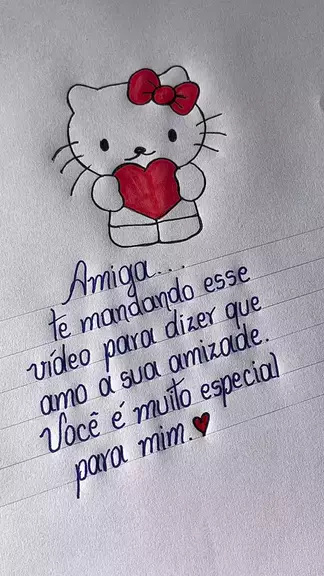 Amiga...
te mandando esse
vídeo para dizer que
amo a sua amizade.
Você é muito especial
para mim.